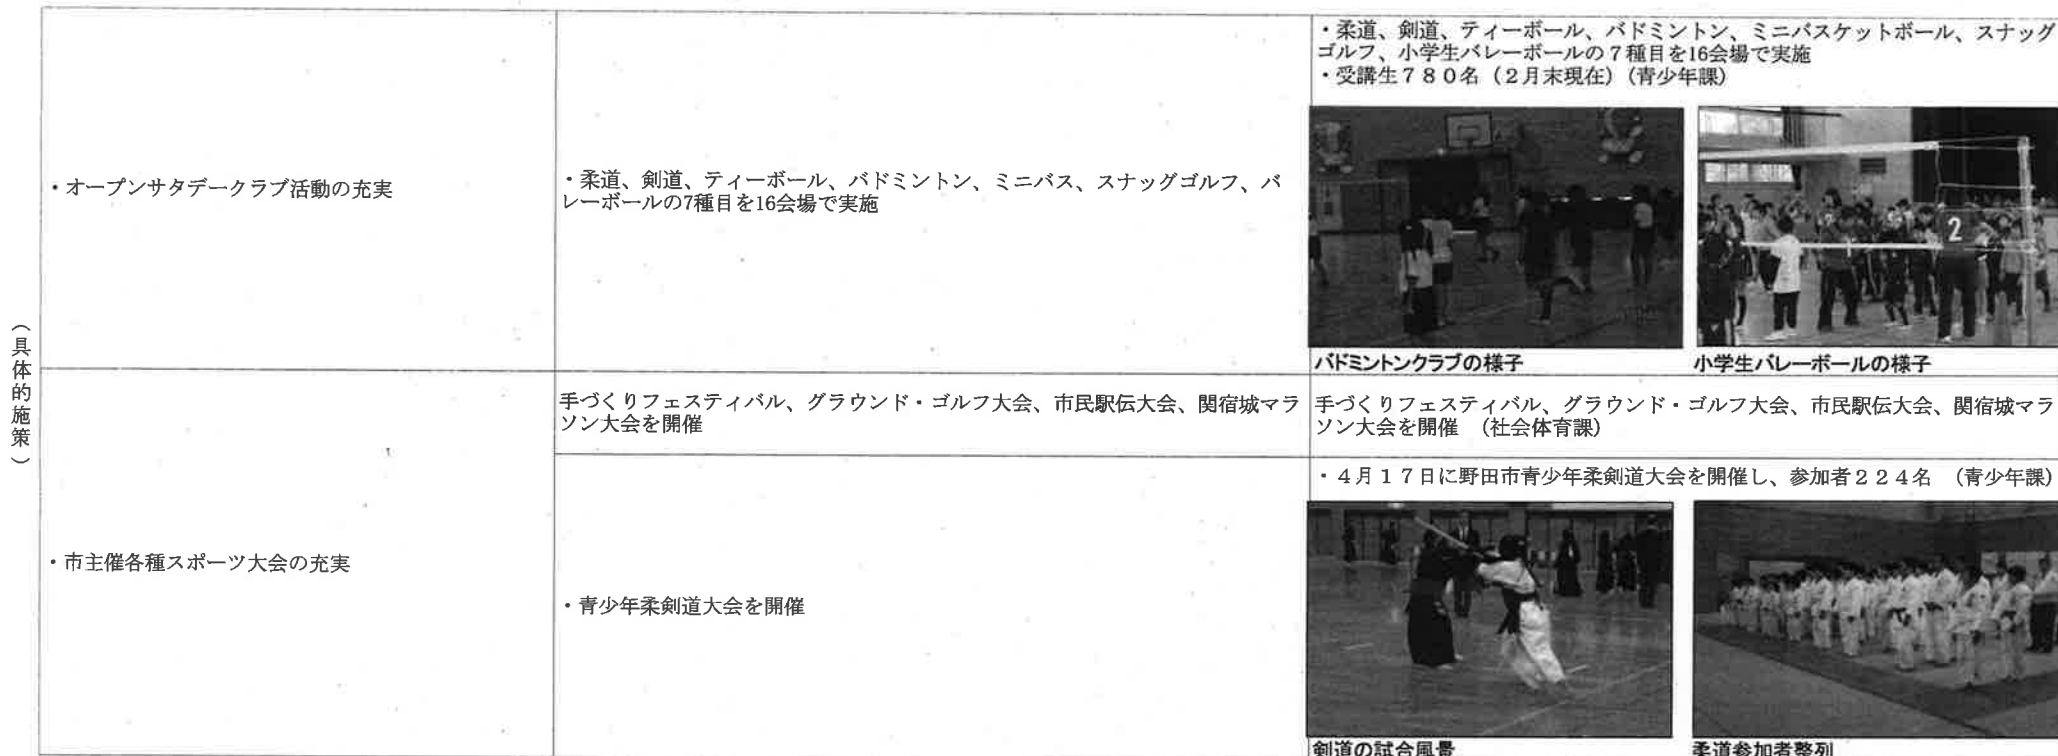 （具体的施策）
・オープンサタデークラブ活動の充実
・柔道、剣道、ティーボール、バドミントン、ミニバス、スナッグゴルフ、バ
レーボールの7種目を16会場で実施
・柔道、剣道、ティーボール、バドミントン、ミニバスケットボール、スナッグ
ゴルフ、小学生バレーボールの７種目を16会場で実施
・受講生７８０名（２月末現在）（青少年課）
2
バドミントンクラブの様子
小学生バレーボールの様子
・市主催各種スポーツ大会の充実
手づくりフェスティバル、グラウンド・ゴルフ大会、市民駅伝大会、関宿城マラ
ソン大会を開催
手づくりフェスティバル、グラウンド・ゴルフ大会、市民駅伝大会、関宿城マラ
ソン大会を開催　（社会体育課）
・青少年柔剣道大会を開催
・４月１７日に野田市青少年柔剣道大会を開催し、参加者２２４名　（青少年課）
剣道の試合風景
柔道参加者整列